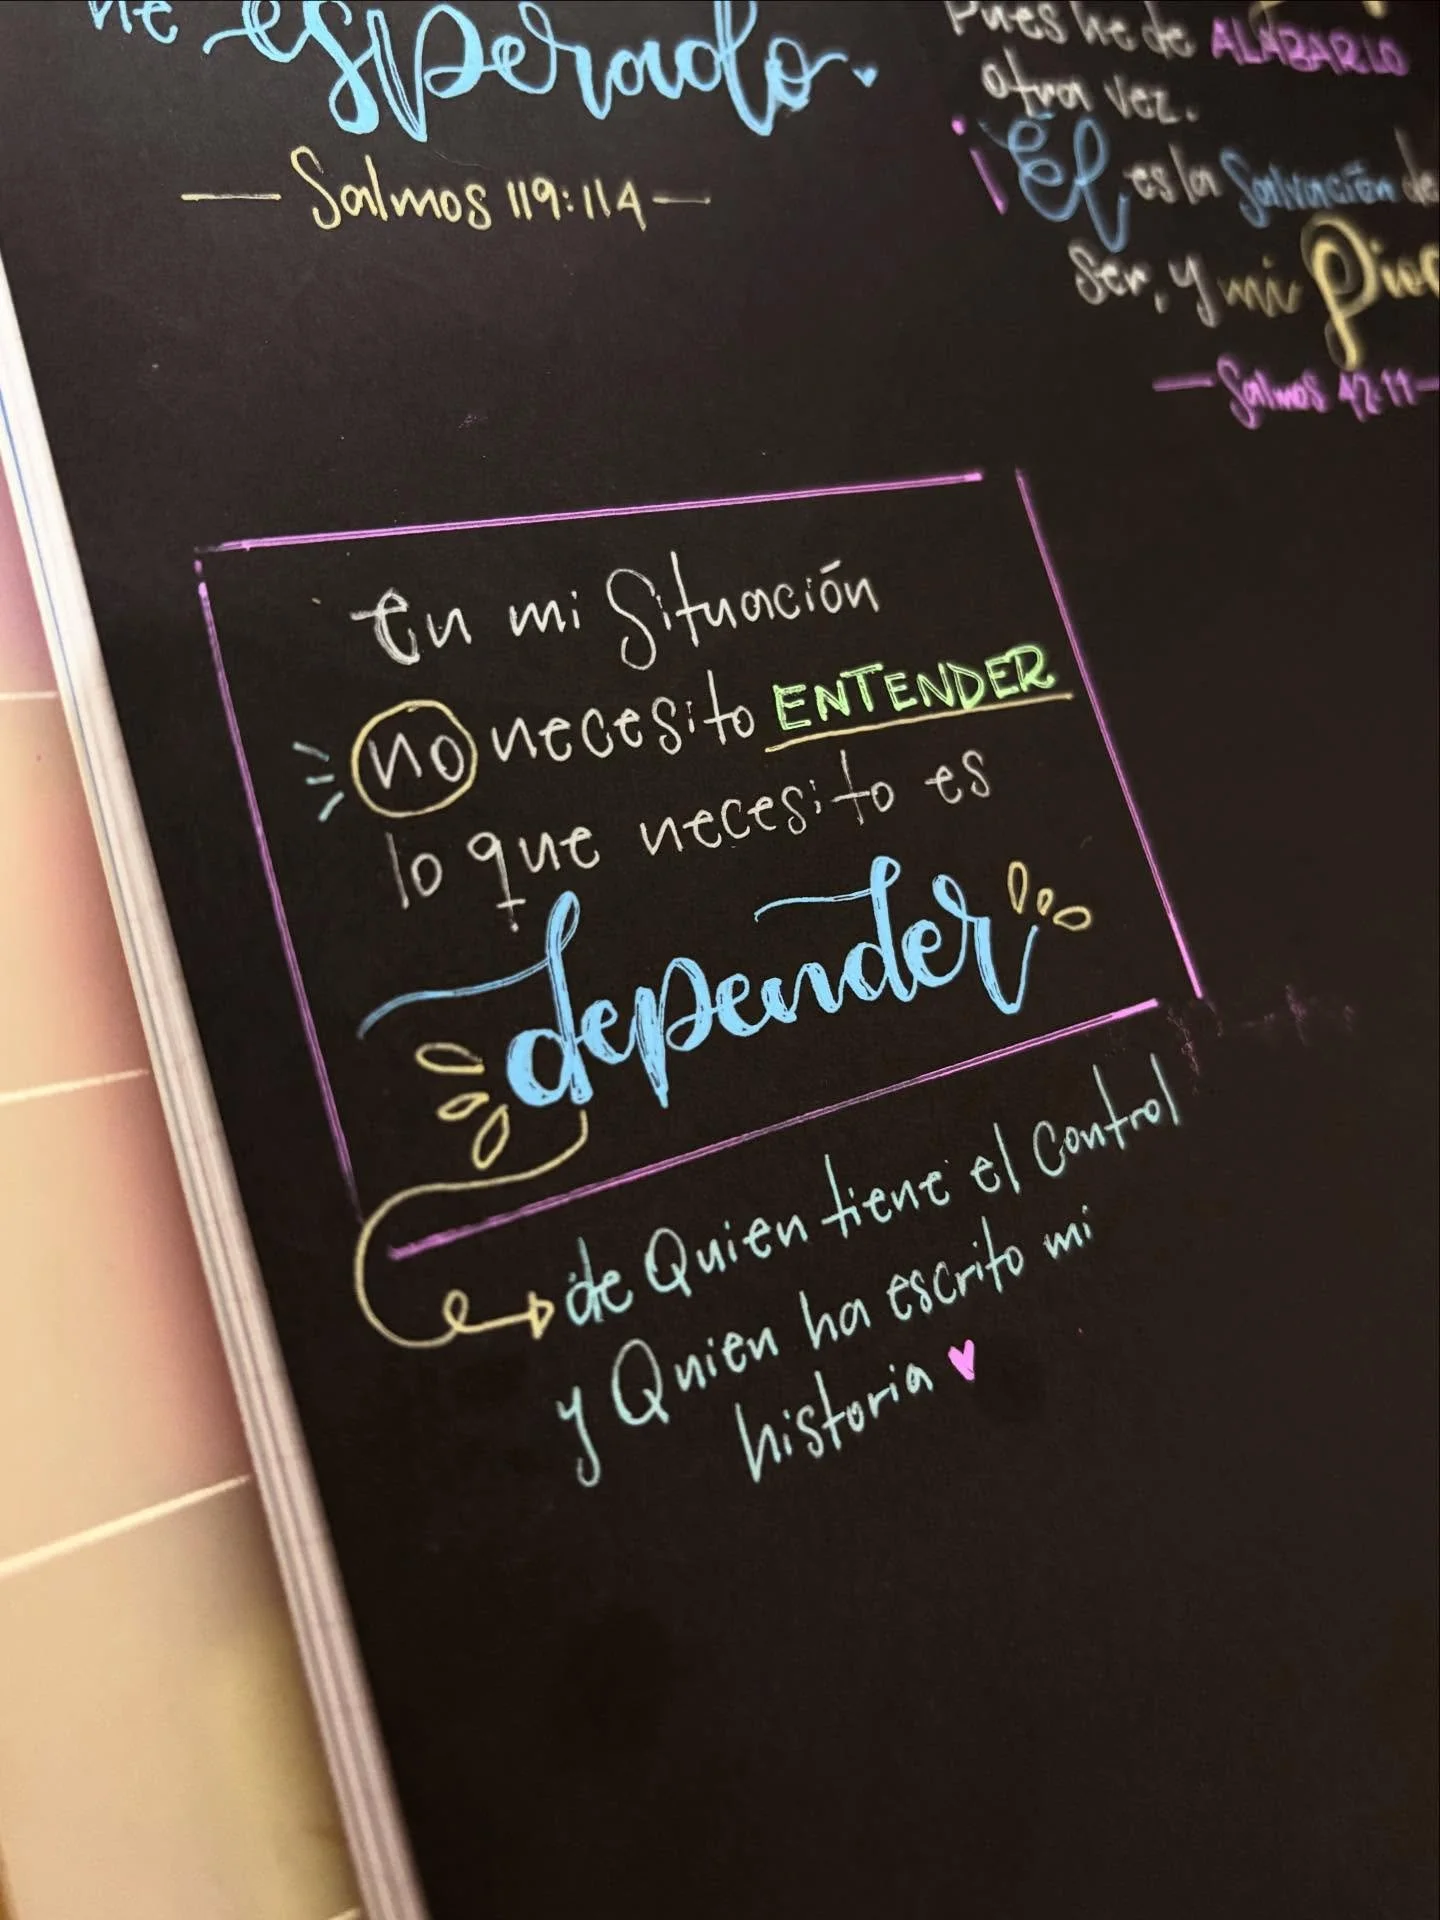 he esperado.
— Salmos 119:114 —
Pues he de ALABARLO
otra vez.
¡Él es la Salvación de
ser, y mi
— Salmos 42:11 —
En mi Situación
no necesito ENTENDER
lo que necesito es
depender
de Quien tiene el Control
y Quien ha escrito mi
historia